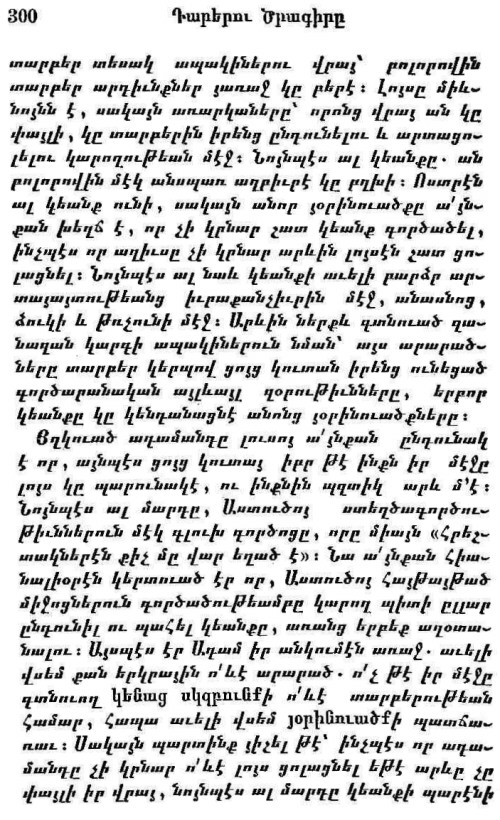 300 Դարերու Ծրագիրը
տարբեր տեսակ ապակիներու վրայ՝ բոլորովին
տարբեր արդիւնքներ յառաջ կը բերէ։ Լոյսը միև-
նոյնն է, սակայն առարկաները՝ որոնց վրայ ան կը
փայլի, կը տարբերին իրենց ընդունելու և արտացո-
լելու կարողութեան մէջ։ Նոյնպէս ալ կեանքը. ան
բոլորովին մէկ անսպառ աղբիւրէ կը բղխի։ Ոստրէն
ալ կեանք ունի, սակայն անոր յօրինուածքը ա՛յն-
քան խեղճ է, որ չի կրնար շատ կեանք գործածել,
ինչպէս որ աղիւսը չի կրնար արևին լոյսէն շատ ցո-
լացնել։ Նոյնպէս ալ նաև կեանքի աւելի բարձր ար-
տայայտութեանց իւրաքանչիւրին մէջ, անասնոց,
ձուկի և թռչունի մէջ։ Արևին ներքև գտնուած զա-
նազան կարգի ապակիներուն նման՝ այս արարած-
ները տարբեր կերպով ցոյց կուտան իրենց ունեցած
գործարանական այլևայլ զօրութիւնները, երբոր
կեանքը կը կենդանացնէ անոնց յօրինուածքները։
Յղկուած ադամանդը լուսոյ ա՛յնքան ընդունակ
է որ, այնպէս ցոյց կուտայ իբր թէ ինքն իր մէջը
լոյս կը պարունակէ, ու ինքնին պզտիկ արև մ՚է։
Նոյնպէս ալ մարդը, Աստուծոյ ստեղծագործու-
թիւններուն մէկ գլուխ գործոցը, որը միայն «Հրեշ-
տակներէն քիչ մը վար եղած է»։ Նա ա՛յնքան հիա-
նալիօրէն կերտուած էր որ, Աստուծոյ հայթայթած
միջոցներուն գործածութեամբը կարող պիտի ըլլար
ընդունիլ ու պահել կեանքը, առանց երբեք աղօտա-
նալու։ Այսպէս էր Ադամ իր անկումէն առաջ. աւելի
վսեմ քան երկրային ո՛ևէ արարած. ո՛չ թէ իր մէջը
գտնուող կենաց սկզբունքի ո՛ևէ տարբերութեան
համար, հապա աւելի վսեմ յօրինուածքի պատճա-
ռաւ։ Սակայն պարտինք յիշել թէ՝ ինչպէս որ ադա-
մանդը չի կրնար ո՛ևէ լոյս ցոլացնել եթէ արևը չը
փայլի իր վրայ, նոյնպէս ալ մարդը կեանքի պարէնի